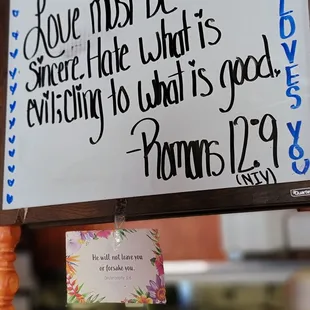 Love must be
sincere. Hate what is
evil; cling to what is good.
-Romans 12:9
(NIV)
LOVES YOU
Quartet
He will not leave you
or forsake you.